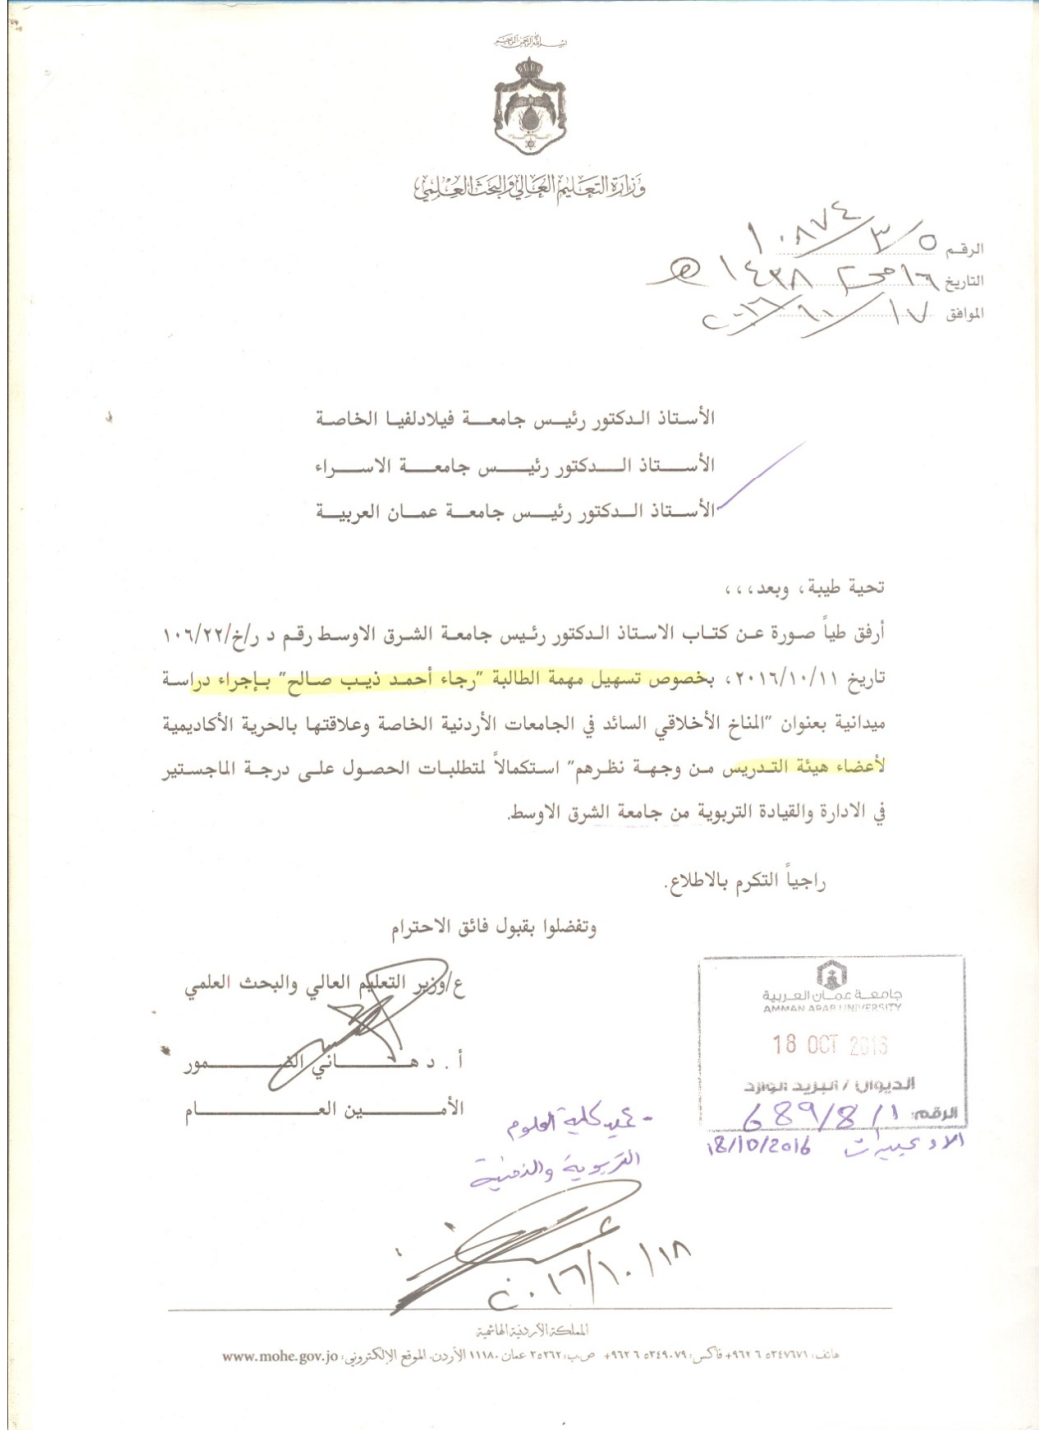 بسم الله الرحمن الرحيم
وزارة التعليم العالي والبحث العلمي
الرقم ٥/٣/١٠٨٧٤
التاريخ ١٦ محرم ١٤٣٨ هـ
الموافق ١٧/١٠/٢٠١٦
الأستاذ الدكتور رئيس جامعة فيلادلفيا الخاصة
الأستاذ الدكتور رئيس جامعة الاسراء
الأستاذ الدكتور رئيس جامعة عمان العربية
تحية طيبة، وبعد،،،
أرفق طياً صورة عن كتاب الاستاذ الدكتور رئيس جامعة الشرق الاوسط رقم د ر/خ/١٠٦/٢٢
تاريخ ٢٠١٦/١٠/١١، بخصوص تسهيل مهمة الطالبة "رجاء أحمد ذيب صالح" بإجراء دراسة
ميدانية بعنوان "المناخ الأخلاقي السائد في الجامعات الأردنية الخاصة وعلاقتها بالحرية الأكاديمية
لأعضاء هيئة التدريس من وجهة نظرهم" استكمالاً لمتطلبات الحصول على درجة الماجستير
في الادارة والقيادة التربوية من جامعة الشرق الاوسط.
راجياً التكرم بالاطلاع.
وتفضلوا بقبول فائق الاحترام
ع/وزير التعليم العالي والبحث العلمي
أ . د هاني الضمور
الأمين العام
جامعة عمان العربية
AMMAN ARAB UNIVERSITY
18 OCT 2016
الديوان / البريد الوارد
الرقم: 689/8/1
18/10/2016
- عميد كلية العلوم
التربوية والنفسية
٢٠١٦/١٠/١٨
المملكة الأردنية الهاشمية
هاتف: ٥٣٤٧٦٧١ ٦ ٩٦٢+ فاكس: ٥٣٤٩٠٧٩ ٦ ٩٦٢+ ص.ب: ٣٥٢٦٢ عمان ١١١٨٠ الأردن. الموقع الإلكتروني: www.mohe.gov.jo